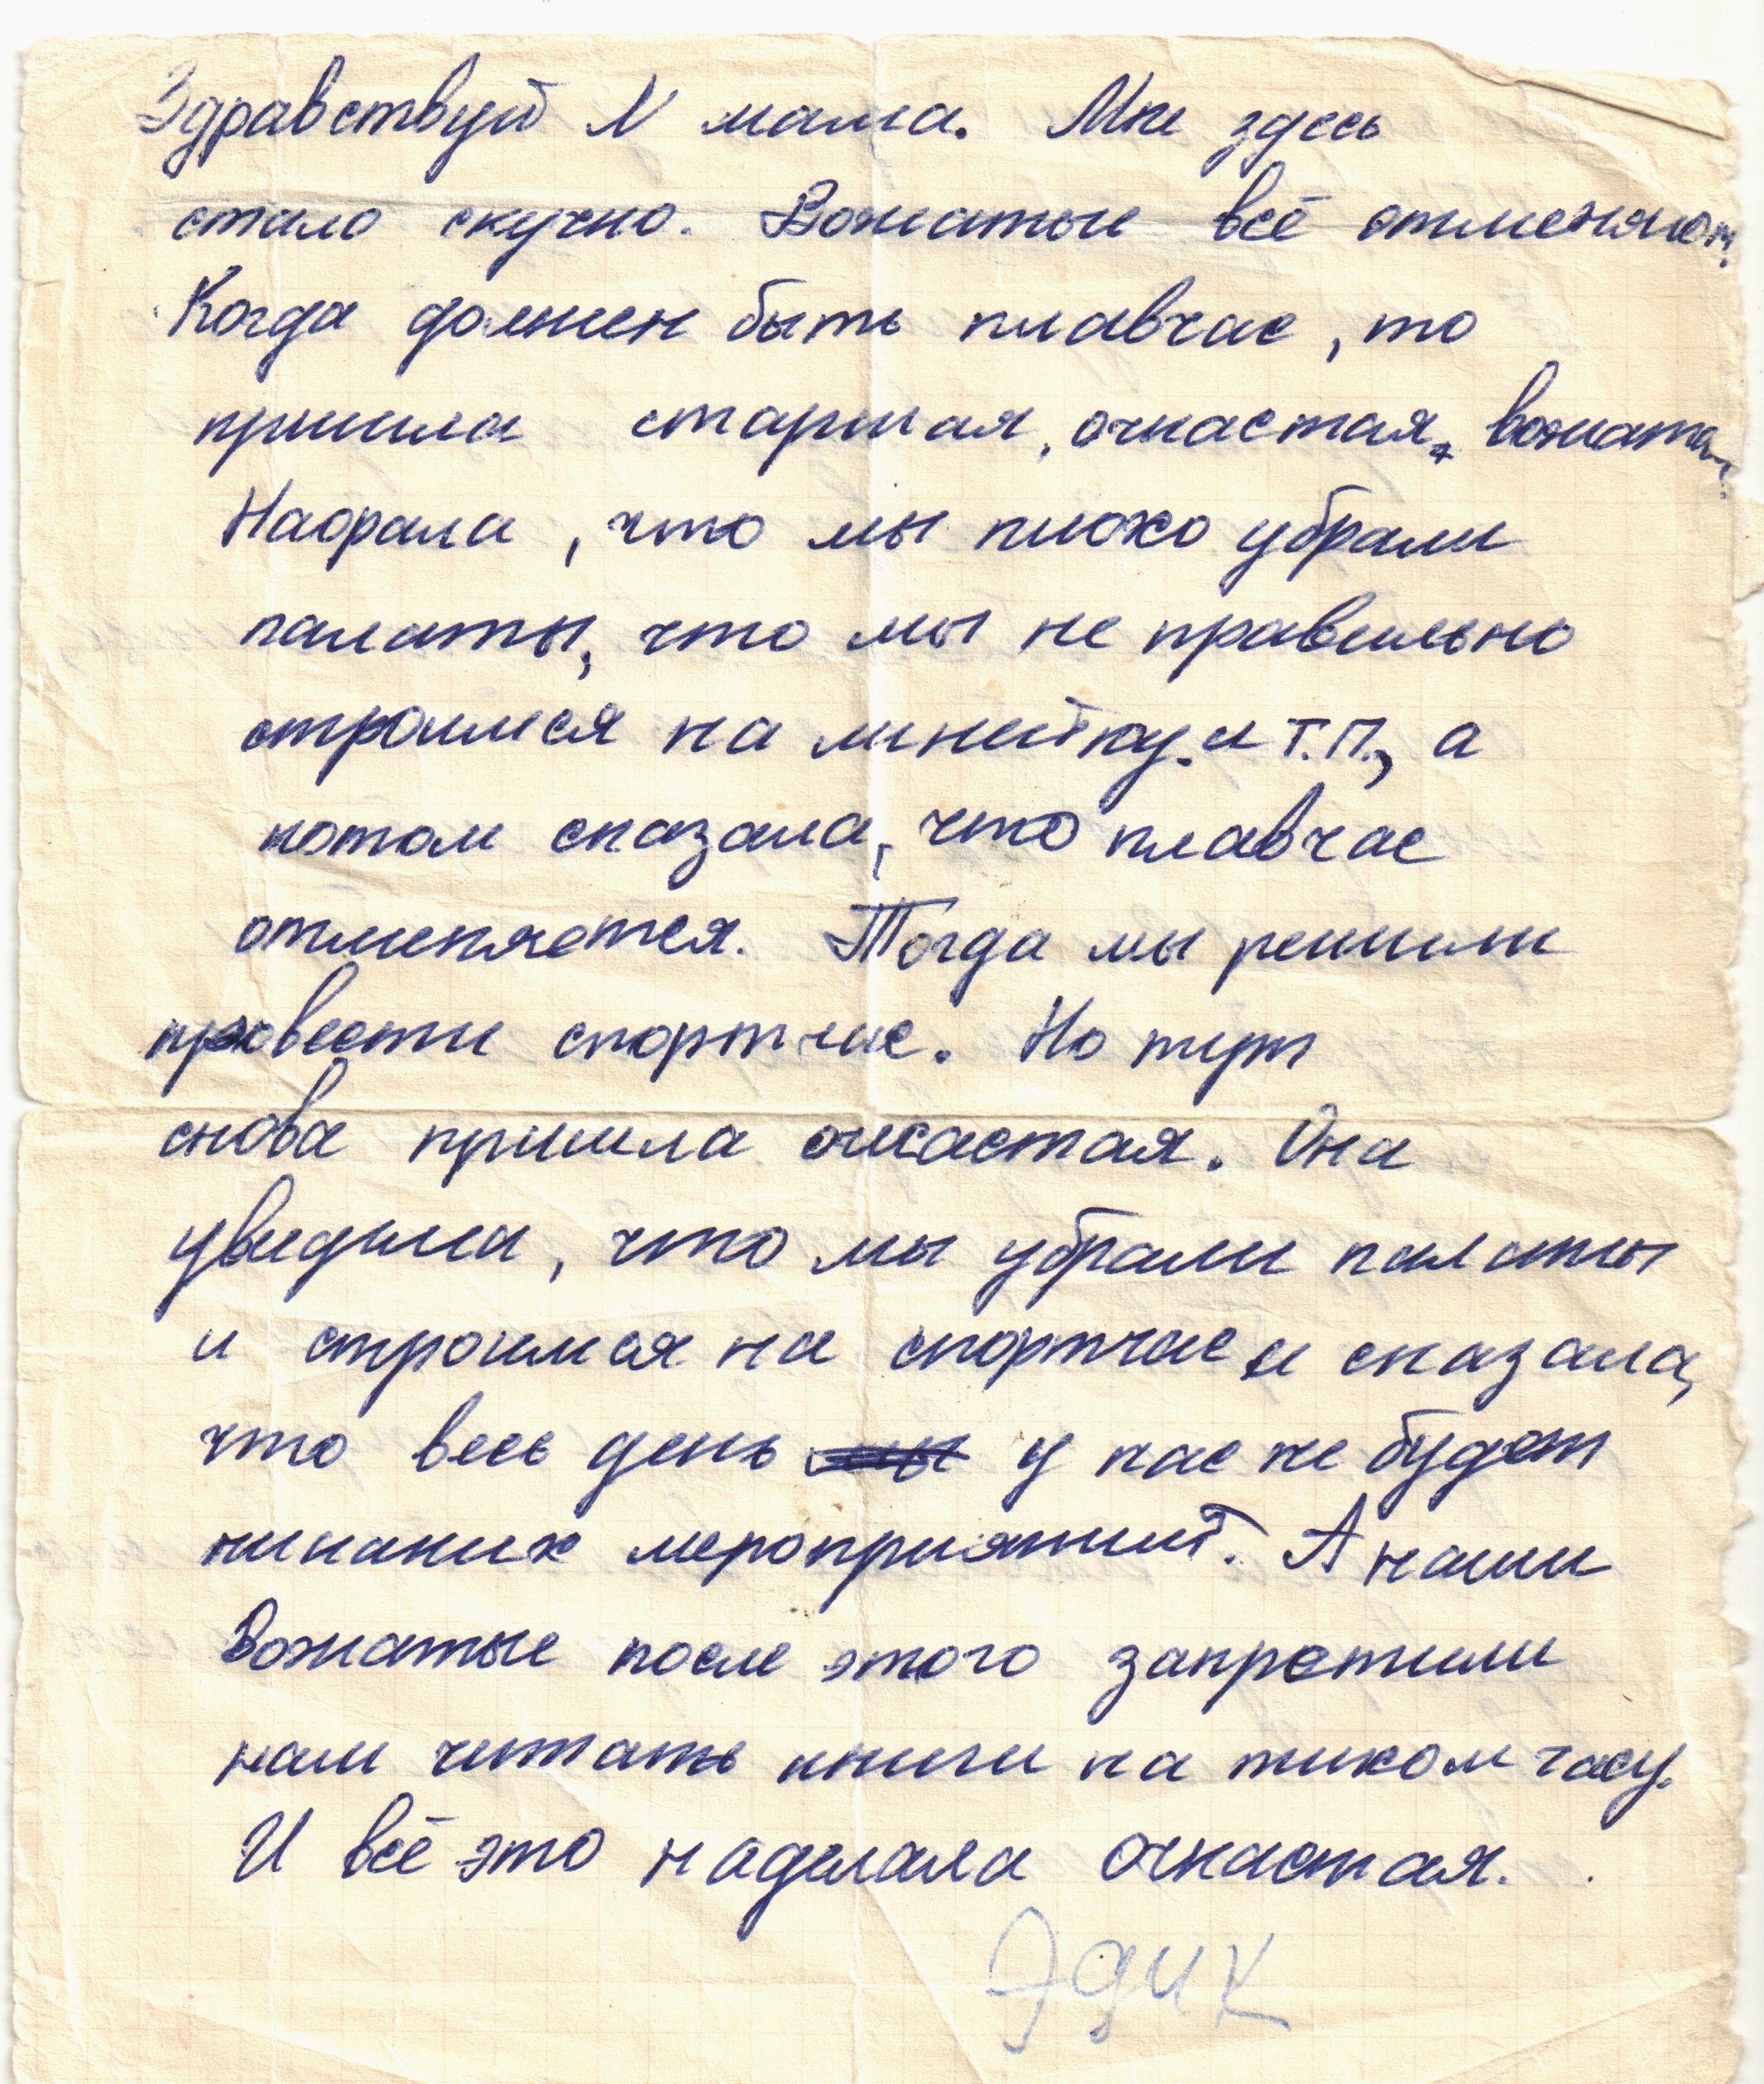 Здравствуй N мама. Мне здесь
стало скучно. Вожатые всё отменяют.
Когда должен быть плавчас, то
пришла старшая, очкастая, вожатая.
Наорала, что мы плохо убрали
палаты, что мы не правильно
строимся на линейку. и т.п., а
потом сказала, что плавчас
отменяется. Тогда мы решили
провести спортчас. Но тут
снова пришла очкастая. Она
увидила, что мы убрали палаты
и строимся на спортчас и сказала,
что весь день у нас не будет
никаких мероприятий. А наши
Вожатые после этого запретили
нам читать книги на тихом часу.
И всё это наделала очкастая.
Эдик